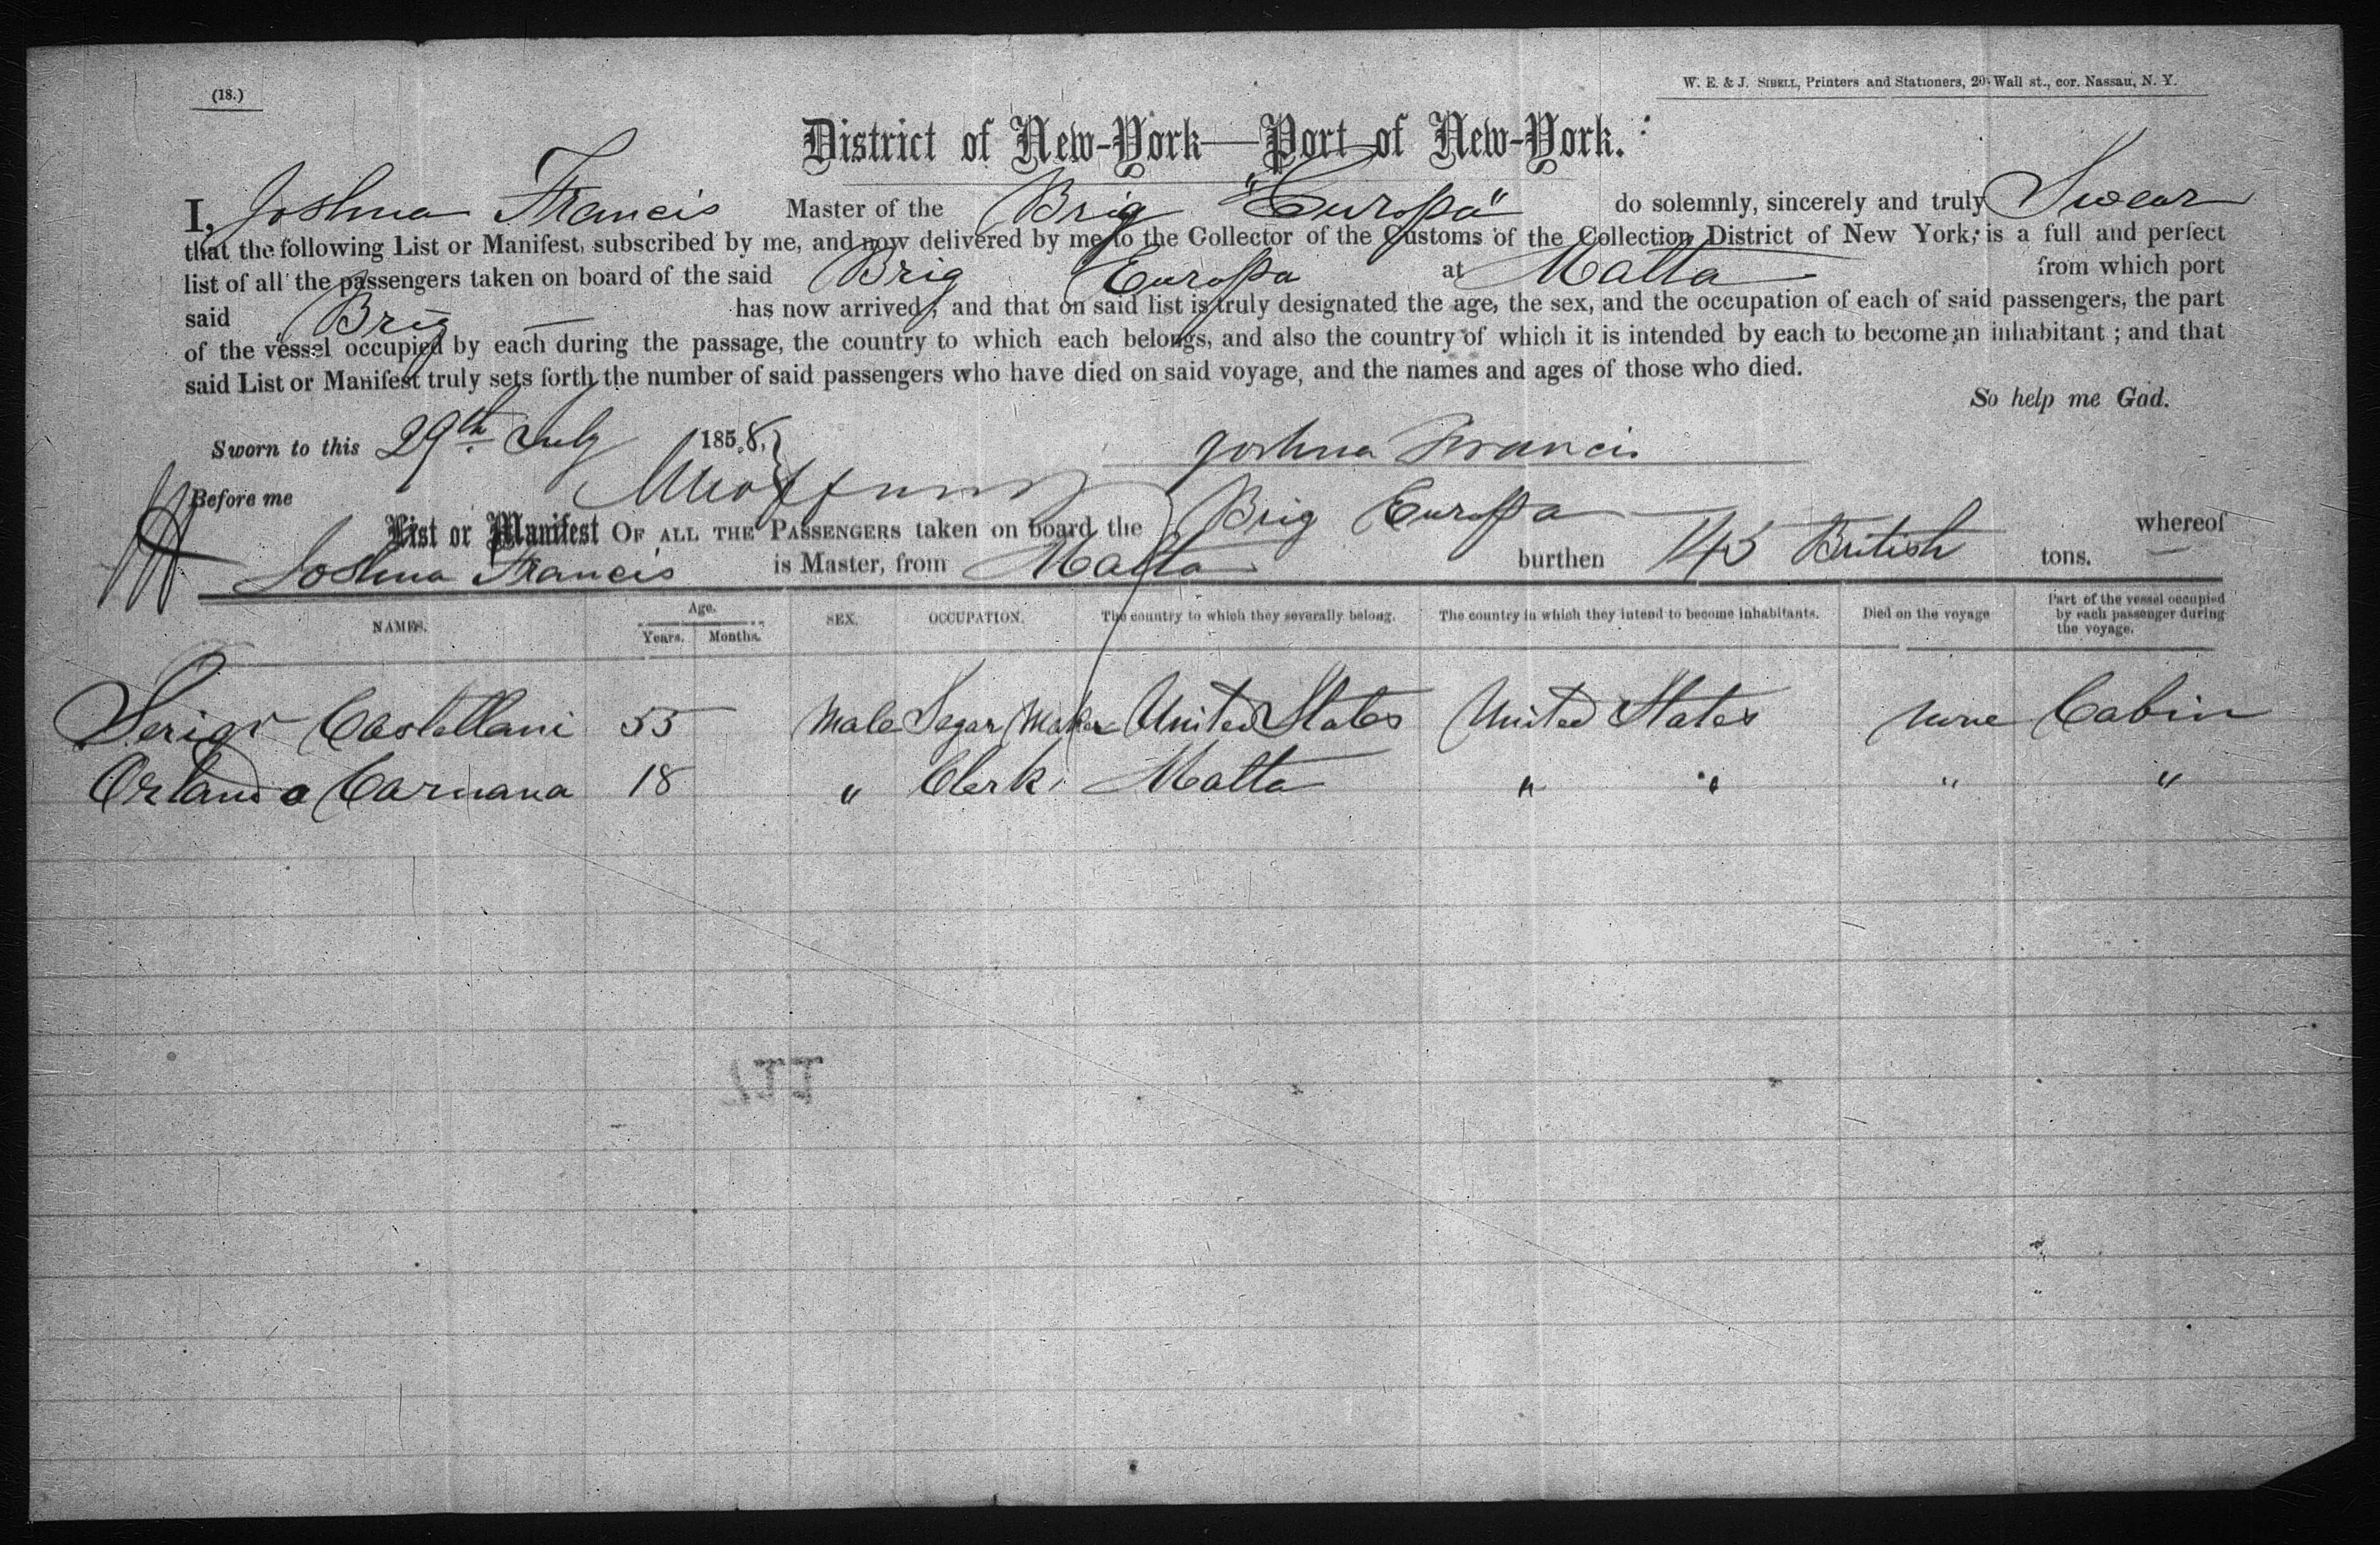 (18.)
W. E. & J. SIBELL, Printers and Stationers, 20 Wall st., cor. Nassau, N. Y.
District of New-York—Port of New-York.
I, Joshua Francis Master of the Brig "Europa" do solemnly, sincerely and truly Swear
that the following List or Manifest, subscribed by me, and now delivered by me to the Collector of the Customs of the Collection District of New York, is a full and perfect
list of all the passengers taken on board of the said Brig Europa at Malta from which port
said Brig has now arrived, and that on said list is truly designated the age, the sex, and the occupation of each of said passengers, the part
of the vessel occupied by each during the passage, the country to which each belongs, and also the country of which it is intended by each to become an inhabitant ; and that
said List or Manifest truly sets forth the number of said passengers who have died on said voyage, and the names and ages of those who died.
So help me God.
Sworn to this 29th July 1858. Joshua Francis
Before me
List or Manifest OF ALL THE PASSENGERS taken on board the Brig Europa whereof
Joshua Francis is Master, from Malta burthen 145 British tons.
NAMES. Age. Years. Months. SEX. OCCUPATION. The country to which they severally belong. The country in which they intend to become inhabitants. Died on the voyage Part of the vessel occupied by each passenger during the voyage.
Castellani 55 Male Segar Maker United States United States none Cabin
Orlando Caruana 18 " Clerk Malta " " " "
711